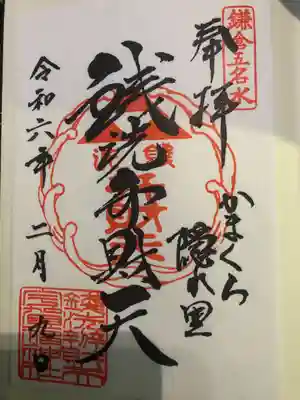 鎌倉五名水
奉拝
かまくら
隠れ里
銭洗弁財天
令和六年
二月
九日